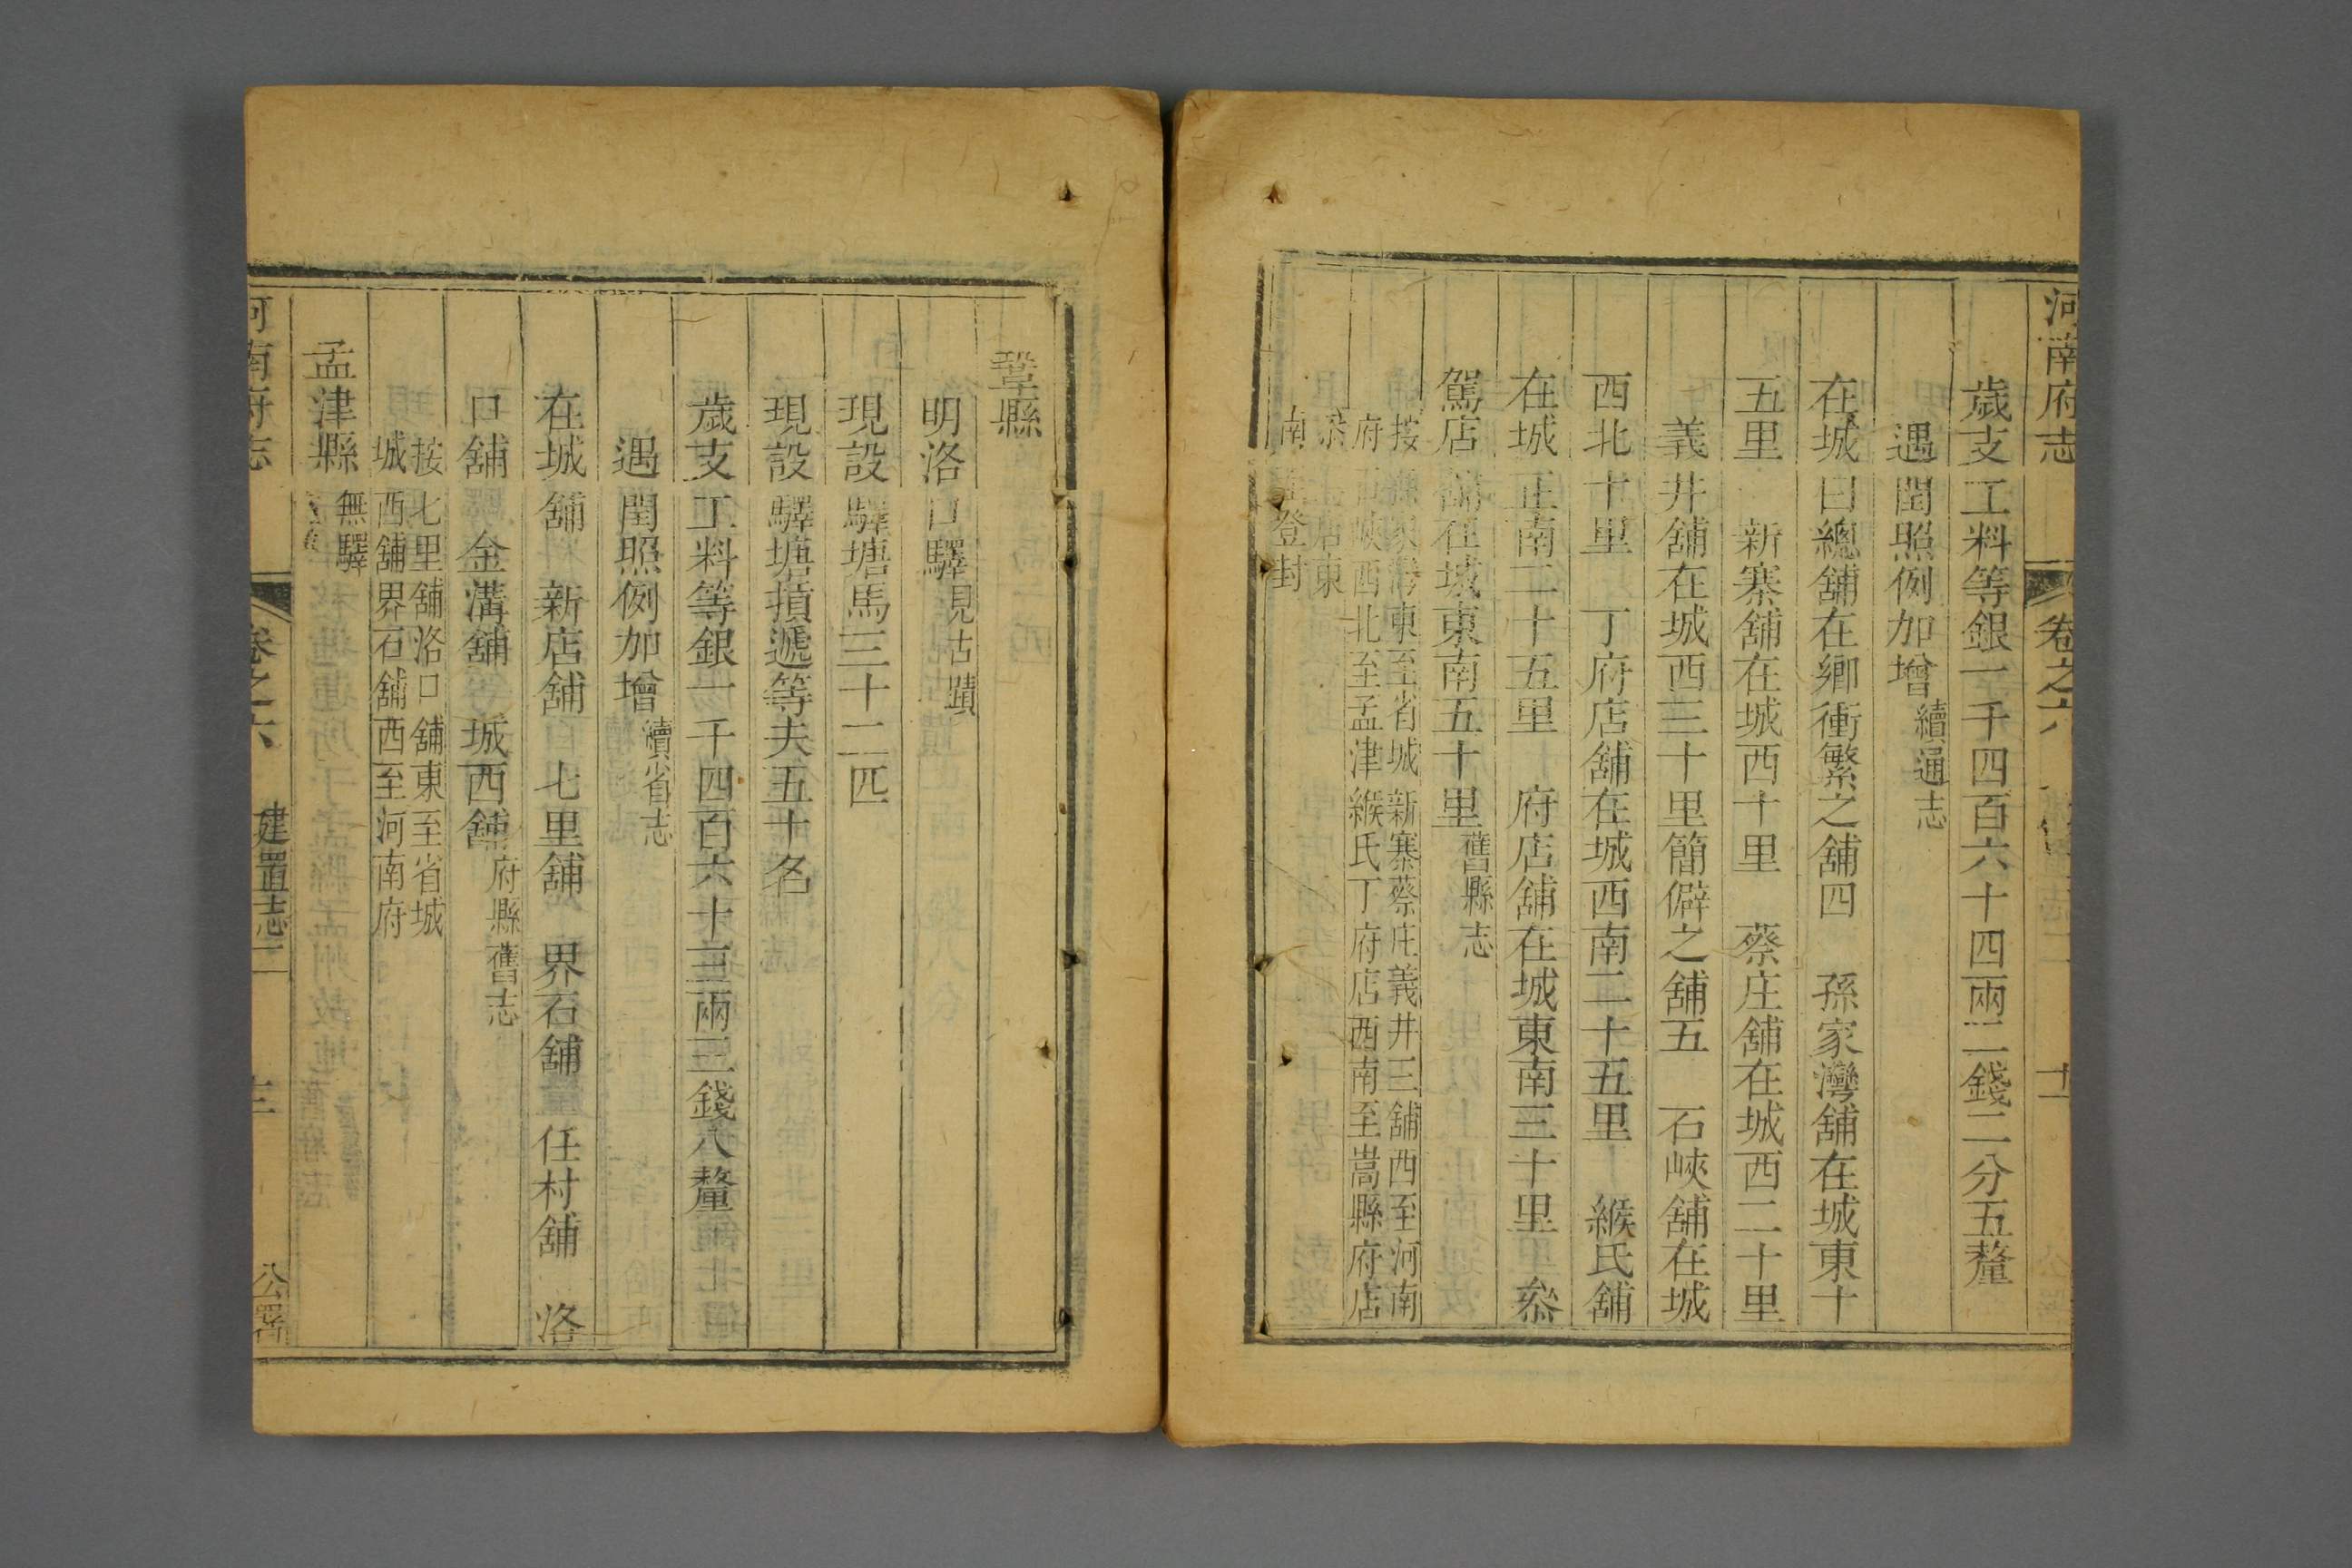 河南府志 卷之六
歲支工料等銀一千四百六十四兩二錢二分五釐
遇閏照例加增續通志
在城曰總舖在鄉衝繁之舖四 孫家灣舖在城東十
五里 新寨舖在城西十里 蔡庄舖在城西二十里
義井舖在城西三十里簡僻之舖五 石峽舖在城
西北十里 丁府店舖在城西南二十五里 緱氏舖
在城正南二十五里 府店舖在城東南三十里 叅
駕店舖在城東南五十里舊縣志
按孫家灣東至省城新寨蔡庄義井三舖西至河南
府石峽西北至孟津緱氏丁府店西南至嵩縣府店
東
南 登封
鞏縣
明洛口驛見古蹟
現設驛塘馬三十二匹
現設驛塘摃遞等夫五十名
歲支工料等銀一千四百六十三兩三錢八釐
遇閏照例加增續省志
在城舖 新店舖 七里舖 界石舖 任村舖 洛
口舖 金溝舖 城西舖府縣舊志
按七里舖洛口舖東至省城
城西舖界石舖西至河南府
孟津縣無驛
河南府志 卷之六 建置志二 公署